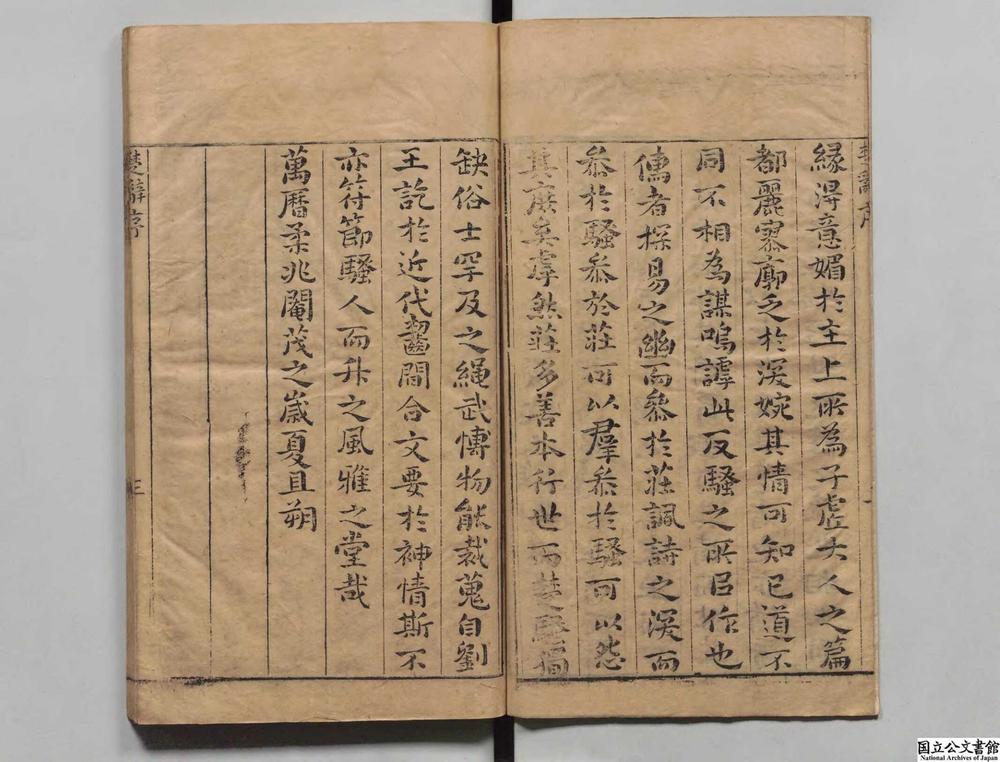 緣得意媚於主上所為子虛大人之篇
都麗寥廓乏於深婉其情可知已道不
同不相為謀嗚謼此反騷之所㠯作也
儒者探易之幽而叅於莊諷詩之深而
叅於騷叅於莊可以羣叅於騷可以怨
其庶矣虖然莊多善本行世而楚騷猶
缺俗士罕及之繩武博物能裁蒐自劉
王訖於近代齧闔合文要於神情斯不
亦符節騷人而升之風雅之堂哉
萬曆柔兆閹茂之歲夏且朔
楚辭序
三
国立公文書館
National Archives of Japan